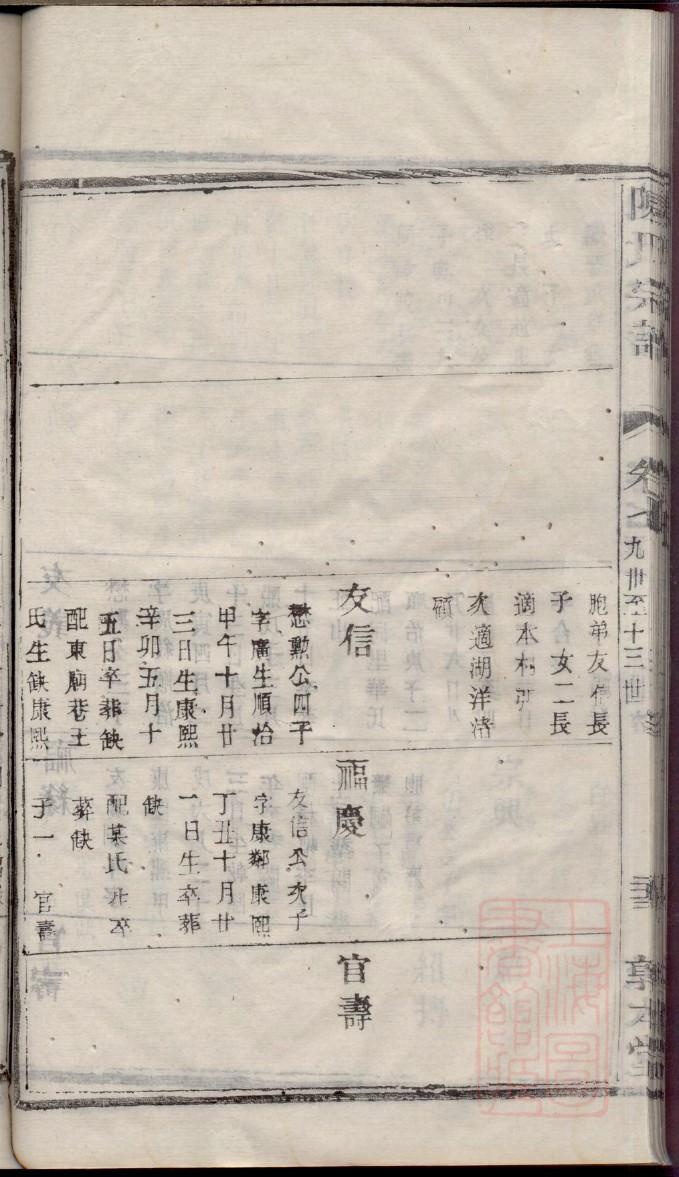 陳氏宗譜
卷七
九世至十三世
敦本堂
胞弟友信長
子合　女二長
適本村
次適湖洋渚
顧
友信
懋勳公四子
字廣生順治
甲午十月廿
三日生康熙
辛卯五月十
五日卒葬缺
配東廟巷王
氏生缺康熙
福慶
友信公次子
字康鄰康熙
丁丑十月廿
一日生卒葬
缺
配某氏生卒
葬缺
子一　官壽
官壽
上海圖書館藏